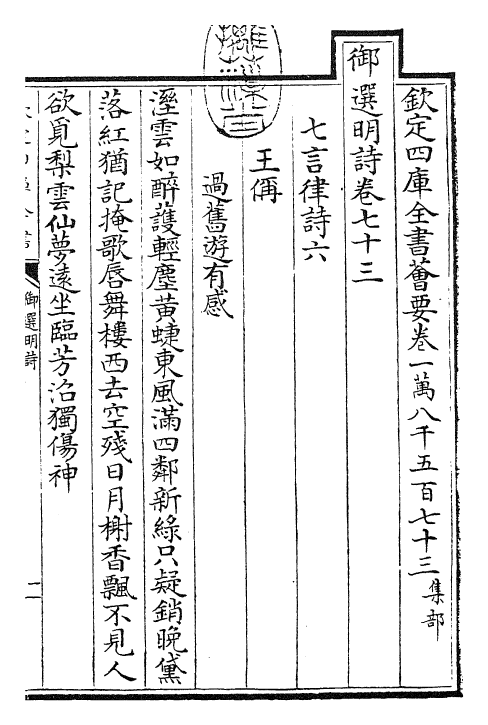 欽定四庫全書薈要卷一萬八千五百七十三 集部
御選明詩卷七十三
七言律詩六
王偁
過舊遊有感
溼雲如醉䕶輕塵黄蜨東風滿四鄰新綠只疑銷晚黛
落紅猶記掩歌唇舞樓西去空殘日月榭香飄不見人
欲覓梨雲仙夢逺坐臨芳沼獨傷神
御選明詩